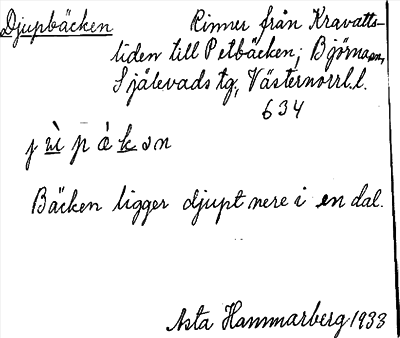 Djupbäcken Rinner från Kravatts-
liden till Petbäcken; Björna sn,
Själevads tg, Västernorrl. l.
634
Bäcken ligger djupt nere i en dal.
Asta Hammarberg 1933